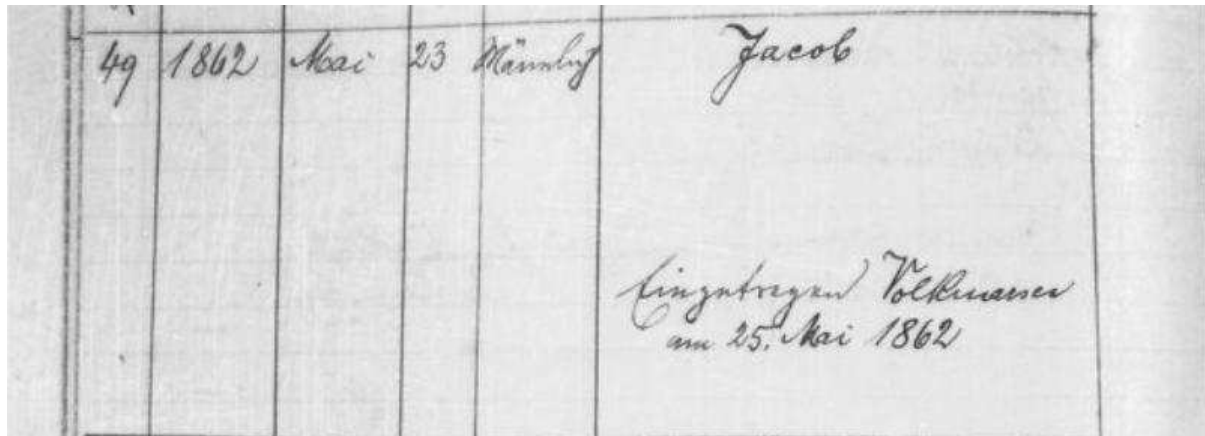 49 1862 Mai 23 Männlich Jacob
Eingetragen Volkmarsen
am 25. Mai 1862